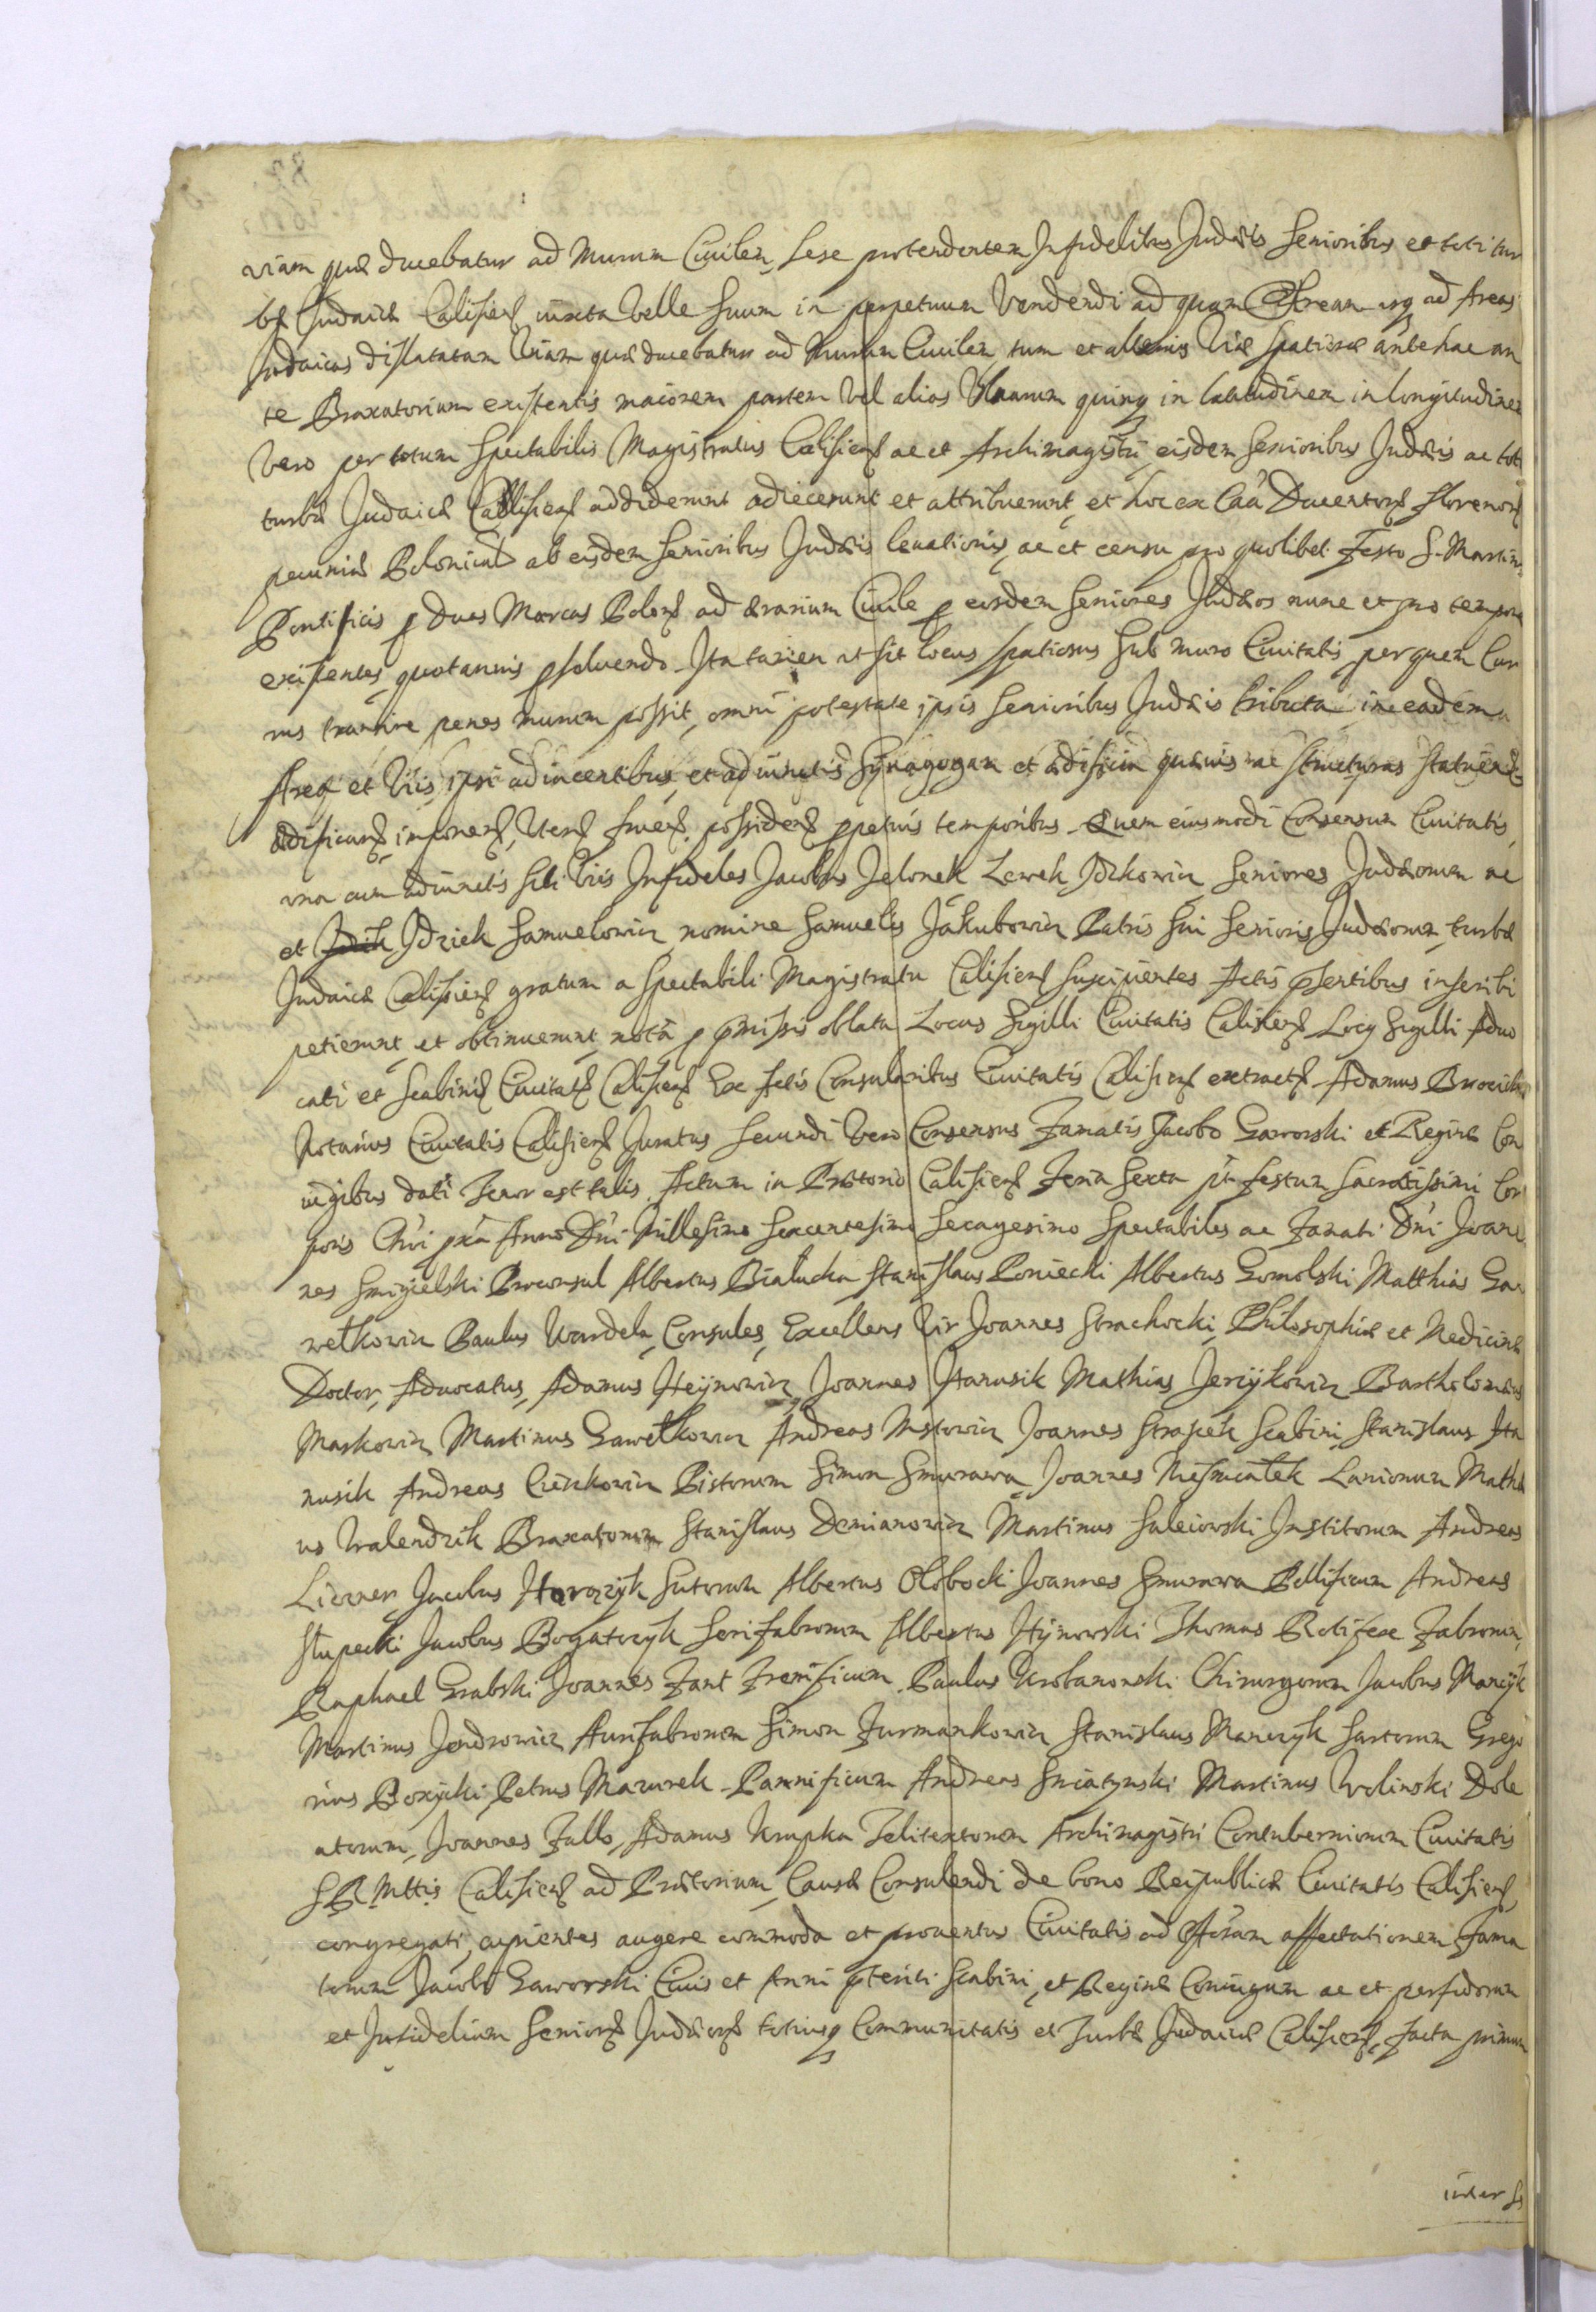 viam quæ ducebatur ad Murum Civilem, sese protendentem Infidelibus Judæis Senioribus et toti tur
bæ Judaicæ Calisiens iuxta Velle Suum in perpetuum Vendendi ad quam Aream usq ad Areas
Judaicas dilatatam Viam quæ ducebatur ad Murum Civilem tum et alterius Viæ spatiosæ antehac an
te Braxatorium existentis maiorem partem Vel alias Ulnarum quinq in latitudinem in longitudinem
Vero per totum Spectabilis Magistratus Calisiens ac et Archimagistri eisdem Senioribus Judæis ac toti
turbæ Judaicæ Callisiens addiderunt adiecerunt et attribuerunt, et hoc ex Caã Ducentors florenors
pecuniæ Polonical ab eisdem Senioribus Judæis levationis ac et censu pro quolibet Festo S. Martini
Pontificis p duas Marcas Polons ad ærarium Civile p eosdem Seniores Judæos nunc et pro tempore
existentes, quotannis psolvendo. Ita tamen ut sit locus spatiosus Sub muro Civitatis per quem Cur
rus transire penes murum possit, omni potestate ipsis Senioribus Judæis tributa in eadem
Area et Viis, ipsi adiacentibus, et adiunctis Synagogam et ædificia quævis ac structuras statuend
ædificans, imponens, Utens fruens possidens ppetuis temporibus. Quem eiusmodi Consensum Civitatis
una cum adiunctis sibi Viis Infideles Jacobus Jelonek Lewek Jdzkowicz Seniores Judæorum ac
et Jdzik Jdziek Samuelowicz nomine Samuelis Jakubowicz Patris Sui Senioris Judæorum, turbæ
Judaicæ Calisiens gratum a Spectabili Magistratu Calisiens Suscipientes Actis psentibus inscribi
petierunt, et obtinuerunt, notã p pmissis oblata Locus Sigilli Civitatis Calisiens Locq Sigilli Advo
cati et Scabinis Civitats Calisiens Ex Actis Consularibus Civitatis Calisiens extracts. Adamus
Notarius Civitatis Calisiens Juratus Secundi Vero Consensus Famatis Jacobo Gaworski et Reginæ Con
iugibus dati Tenor est talis. Actum in Prætorio Calisiens Feria Sexta pñ festum Sacratissimi Cor
poris Chri pxã Anno Dni Millesimo Sexcentesimo Sexagesimo Spectabiles ac Famati Dni Joan
nes Smigielski Proconsul Albertus Białucha Stanislaus Poniecki Albertus Gomolski Matthias Ga
wełkowicz Paulus Wardela, Consules, Excellens Vir Joannes Strachocki, Philosophiæ et Medicinæ
Doctor, Advocatus, Adamus Heynowicz, Joannes Hanusik Mathias Jerzykowicz Bartholomæus
Maskowicz Martinus Gawełkowicz Andreas Joannes Scabini, Stanislaus Ha
nusik Andreas Cienkowicz Pistorum Simon Smurawa, Joannes Lanionum Mathæ
us Walendzik Braxatorum Stanislaus Demianowicz Martinus Suleiowski Institorum Andreas
Jacobus Sutorum Albertus Ołobocki Joannes Smurawa Pellificum Andreas
Słupecki Jacobus Bogatczyk Serifabrorum Albertus Thomas Rotifex Fabrorum,
Raphael Grabski Joannes Fant Frenificum Paulus Urobanowski Chirurgorum Jacobus
Martinus Jendrowicz Aurifabrorum Simon Furmankowicz Stanislaus Marczyk Sartorum Grego
rius Boxycki, Petrus Mazurek Pannificum Andreas Sniatynski Martinus Wolinski Dole
atorum, Joannes Fallo, Adamus Krupka Telitextorum Archimagistri Contuberniorum Civitatis
SRMttis Calisiens ad Prætorium, Causâ Consulendi de bono Reipublicæ Civitatis Calisiens,
congregati, cupientes augere commoda et proventus Civitatis ad affectationem Fama
torum Jacobi Gaworski Civis et Anni pteriti Scabini, et Reginæ Coniugum ac et perfidorum
et Infidelium Seniors Judæors totiusq Communitatis et Turbæ Judaicæ Calisiens, facta